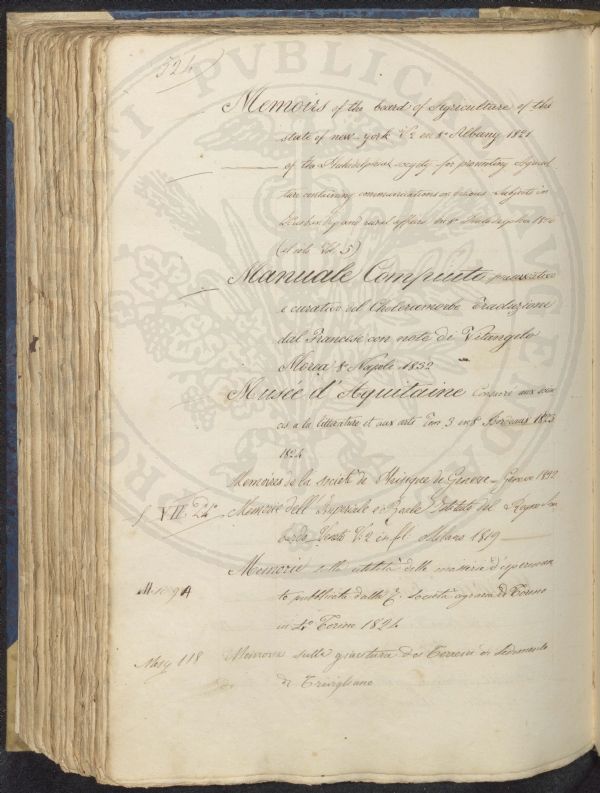 524
Memoirs of the board of Agriculture of the
state of new-york V. 2 en 8° Albany 1821
of the Philadelphia society for promoting Agricul
ture containing communications on various subjects in
husbandry and rural affairs en 8° Philadelphia
(il solo Vol. 5)
Manuale Compiuto preservativo
e curativo del Choleramorbo Traduzione
dal Francese con note di Vitangelo
Morea 8° Napoli 1832
Musée d'Aquitaine Consacré aux scien
ces a la litterature et aux arts Tom 3 en 8° Bordeaux 1823
1824
Memoires de la societé de Phisique de Geneve - Geneve
VII. 24 Memorie dell'Imperiale e Reale Istituto del Regno Lom
bardo Veneto V. 2 in fl. Milano 1819
Memorie sulla utilità delle
te pubblicate dalla R. Società agraria di Torino
in 4° Torino 1824
118 Memoria sulla giacitura dei Terreni
di Trevigliano